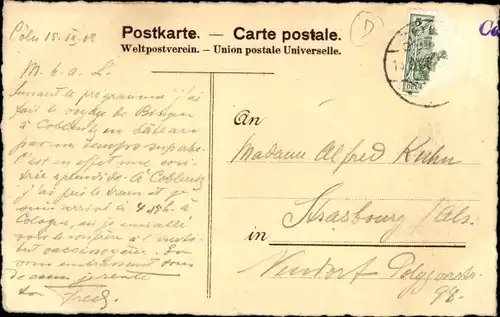 Postkarte. — Carte postale.
Weltpostverein. — Union postale Universelle.
D
5
Cöln 15. IX 08
M. b. a. L.
Suivant le programme j'ai
fait le voyage de Bingen
à Coblentz en bateau
par un temps superbe
C'est en effet une
splendide. à Coblentz
j'ai pris le tram et je
suis arrivé à 4.15h. à
Cologne, où je
voir le à l'insti-
tut vaccinogène. En
vous embrassant tous
je reste
ton Fred.
An
Madame Alfred Kuhn
Strasbourg /Als.
in
Neudorf Polygonstr.
98.